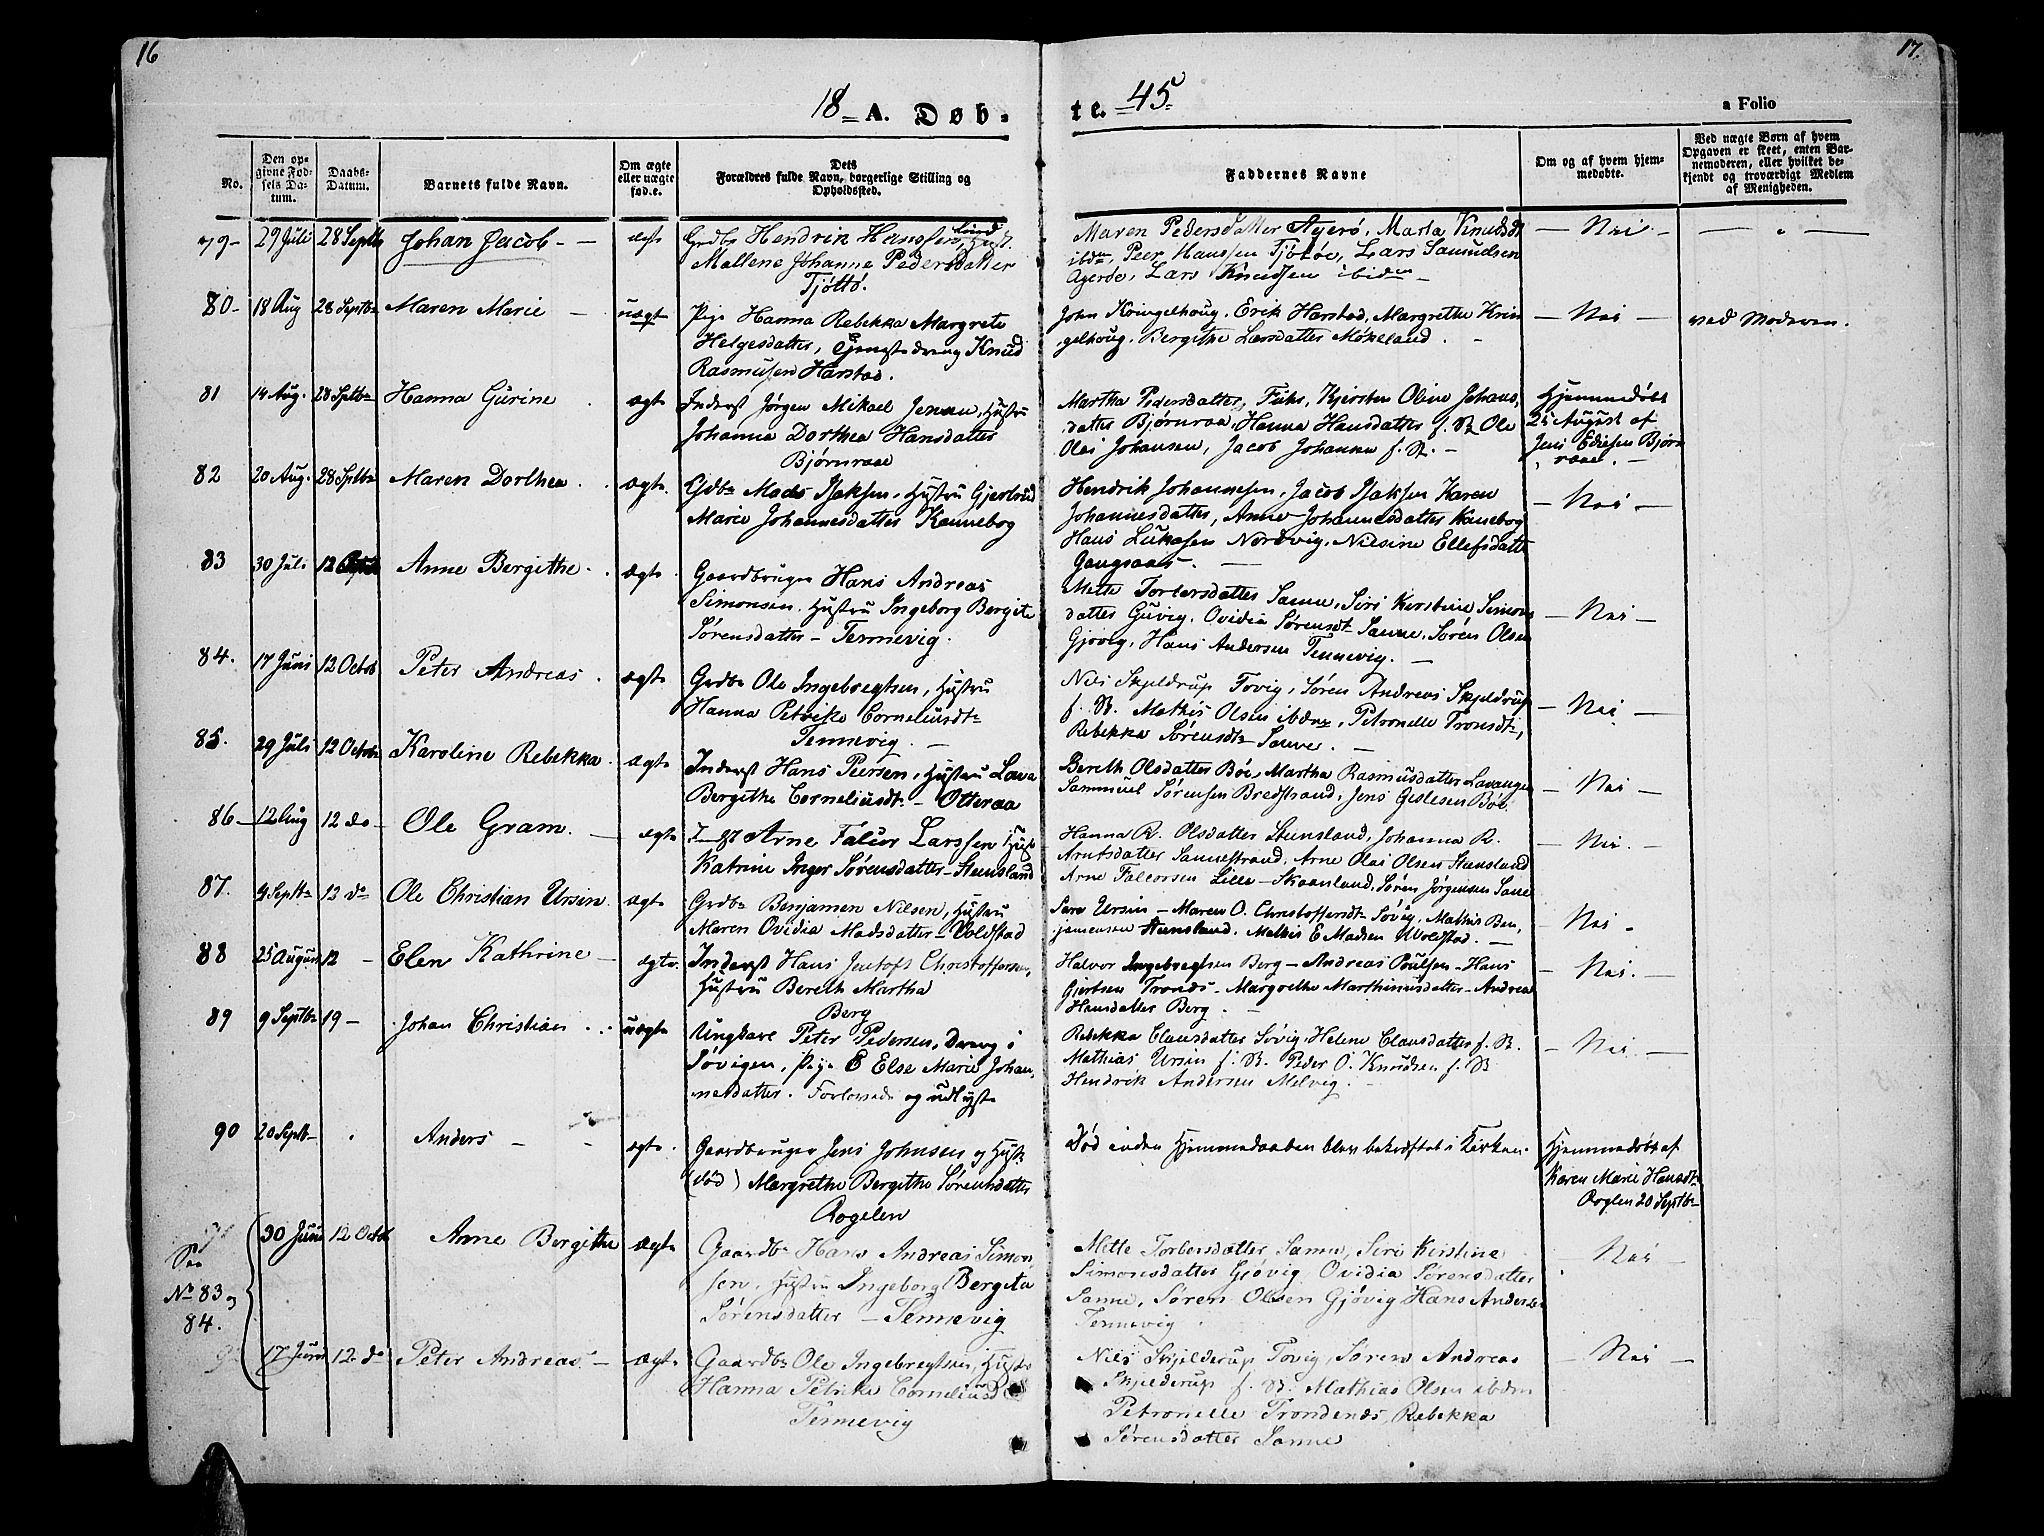 16
17.
18
A. Døb-
te.
45
a Folio
No.
Den op-
givne Fød-
sels Da-
tum.
Daabs-
Datum.
Barnets fulde Navn.
Om ægte
eller uægte
fød.e.
Dets
Forældres fulde Navn, borgerlige Stilling og
Opholdssted.
Faddernes Navne
Om og af hvem hjem-
medøbte.
Ved uægte Børn af hvem
Opgaven er skeet, enten Bar-
nemoderen, eller hvilket be-
kjendt og troværdigt Medlem
af Menigheden.
79- 29 Juli 28 Septb Johan Jacob ægt
Grdb Hendrik Hanssen Lind, Hust.
Mallene Johanne Pedersdatter
Tjøttø.
Maren Pedersdatter Ayerø, Marta Knudsdt
ibdn, Peer Hanssen Tjøtøe, Lars Samuelsen
Agerøe, Lars Knudsen ibidn
Nei
80- 18 Aug 28 Septbr Maren Marie uægt
Pige Hanna Rebekka Margrete
Helgesdatter, Tjenstedreng Knud
Rasmusen Harstad.
John Kringelhoug. Erik Harstad, Margrethe Krin
gelhoug. Bergithe Larsdatter Møkeland.
Nei
ved Moderen.
81 14 Aug. 28 Septbr Hanna Gurine ægte
Inderst Jørgen Mikael Jensen, Hustru
Johanna Dorthea Hansdatter
Bjørnraae
Martha Pedersdatter, Fuhs, Kjersten Oline Johans,
datter Bjørnraa, Hanna Hansdatter f. St. Ole
Olai Johansen, Jacob Johansen f. St.
Hjemmedøbt
25 August af
Jens Ediasen Bjørn
raae.
82 20 Aug. 28 Septbr Maren Dorthea ægte.
Gdbr Mads Isaksen, Hustru Gjertrud
Marie Johannesdatter Kannebog
Hendrik Johannesen, Jacob Isaksen Karen
Johannesdatter, Anne Johannesdatter Kanebog
Hans Lukasen Nordvig, Nilsine Ellefsdatter
Gangsaas.
Nei
83 30 Juli 12 Anne Bergithe ægte
Gaardbruger Hans Andreas
Simonsen, Hustru Ingeborg Bergite
Sørensdatter - Tennevig.
Mette Torbersdatter Sanne, Siri Kerstine Simons
datter Guvig, Ovidia Sørensdt Sanne, Søren Olsen
Gjøvig, Hans Andersen Tennevig.
Nei
84. 17 Juni 12 Octob Peter Andreas ægte
Grdbr Ole Ingebregtsen, Hustru
Hanna Petrike Corneliusdt
Tennevig.
Nils Skjeldrup Tovig, Søren Andreas Skjeldrup
f. St. Mathis Olsen ibdm, Petronelle Tronsdt,
Rebekka Sørensdt Sanne.
Nei
85. 29 Juli 12 Octobr Karoline Rebekka ægte
Inderst Hans Peersen, Hustru Lava
Bergithe Corneliusdt - Otteraa
Bereth Olsdatter Bøe, Martha Rasmusdatter Lavangen
Sammuel Sørensen Bredstrand, Jens Gislesen Bøe
Nei
86 12 Aug 12 do Ole Gram ægte
Indst Arne Falcor Larssen Hust
Katrine Inger Sørensdatter - Stensland
Hanna R. Olsdatter Stensland, Johanna R.
Arntsdatter Sannestrand, Arne Olai Olsen Stensland
Arne Falcorsen Lille-Skaanland, Søren Jørgensen Sane
Nei.
87. 9 Septbr 12 do Ole Christian Ursin ægte
Grdbr Benjamen Nilsen, Hustru
Maren Ovidia Madsdatter Voldstad
Sern Ursin - Maren O. Christoffersdt Søvig, Mathis Ben,
jamensen Stensland. Mathis E Madsen Voldstad.
Nei
88 25 August 12 Elen Kathrine ægte.
Inderst Hans Jentoft Christoffersen,
Hustru Bereth Martha
Berg
Halvor Ingebregtsen Berg - Andreas Poulsen - Hans
Gjertsen Tronds - Margrethe Marthinusdatter - Andrea
Hansdatter Berg.
Nei.
89 9 Septbr 19 Johan Christian uægte
Ungkarl Peter Pedersen, Dreng i
Søvigen, Pige E Else Marie Johan,
nesdatter. Forlovede og udlyste
Rebekka Clausdatter Søvig, Helene Clausdatter f. St.
Mathias Ursin f. St. Peder O. Knudsen f. St
Hendrik Andersen Melvig.
Nei
90 20 Septb Anders ægte
Gaardbruger Jens Johnsen og Hust
(død) Margrethe Bergithe Sørensdatter
Rogelen
Død inden Hjemmedaaben blev bekræftet i Kirken.
Hjemmedøbt af
Karen Marie Hansdt
Roglen 20 Septbr
See
No 83 og
84.
30 Juni 12 Octob Anne Bergithe ægte
Gaardbr Hans Andreas Simon
sen, Hustru Ingeborg Bergita
Sørensdatter - Tennevig
Mette Torbersdatter Sanne, Siri Kirstine
Simonsdatter Gjøvig Ovidia Sørensdatter
Sanne, Søren Olsen Gjøvig Hans Andersen
Tennevig
Nei
17 Juni 12 do Peter Andreas ægte
Gaardbr Ole Ingebregtsen, Hustr
Hanna Petrike Corneliusd
Tennevig
Nils Skjelderup Tovig, Søren Andreas
Skjelderup f. St. Mathias Olsen ibdm
Petronelle Trondenes, Rebekka
Sørensdatter Sanne
Nei